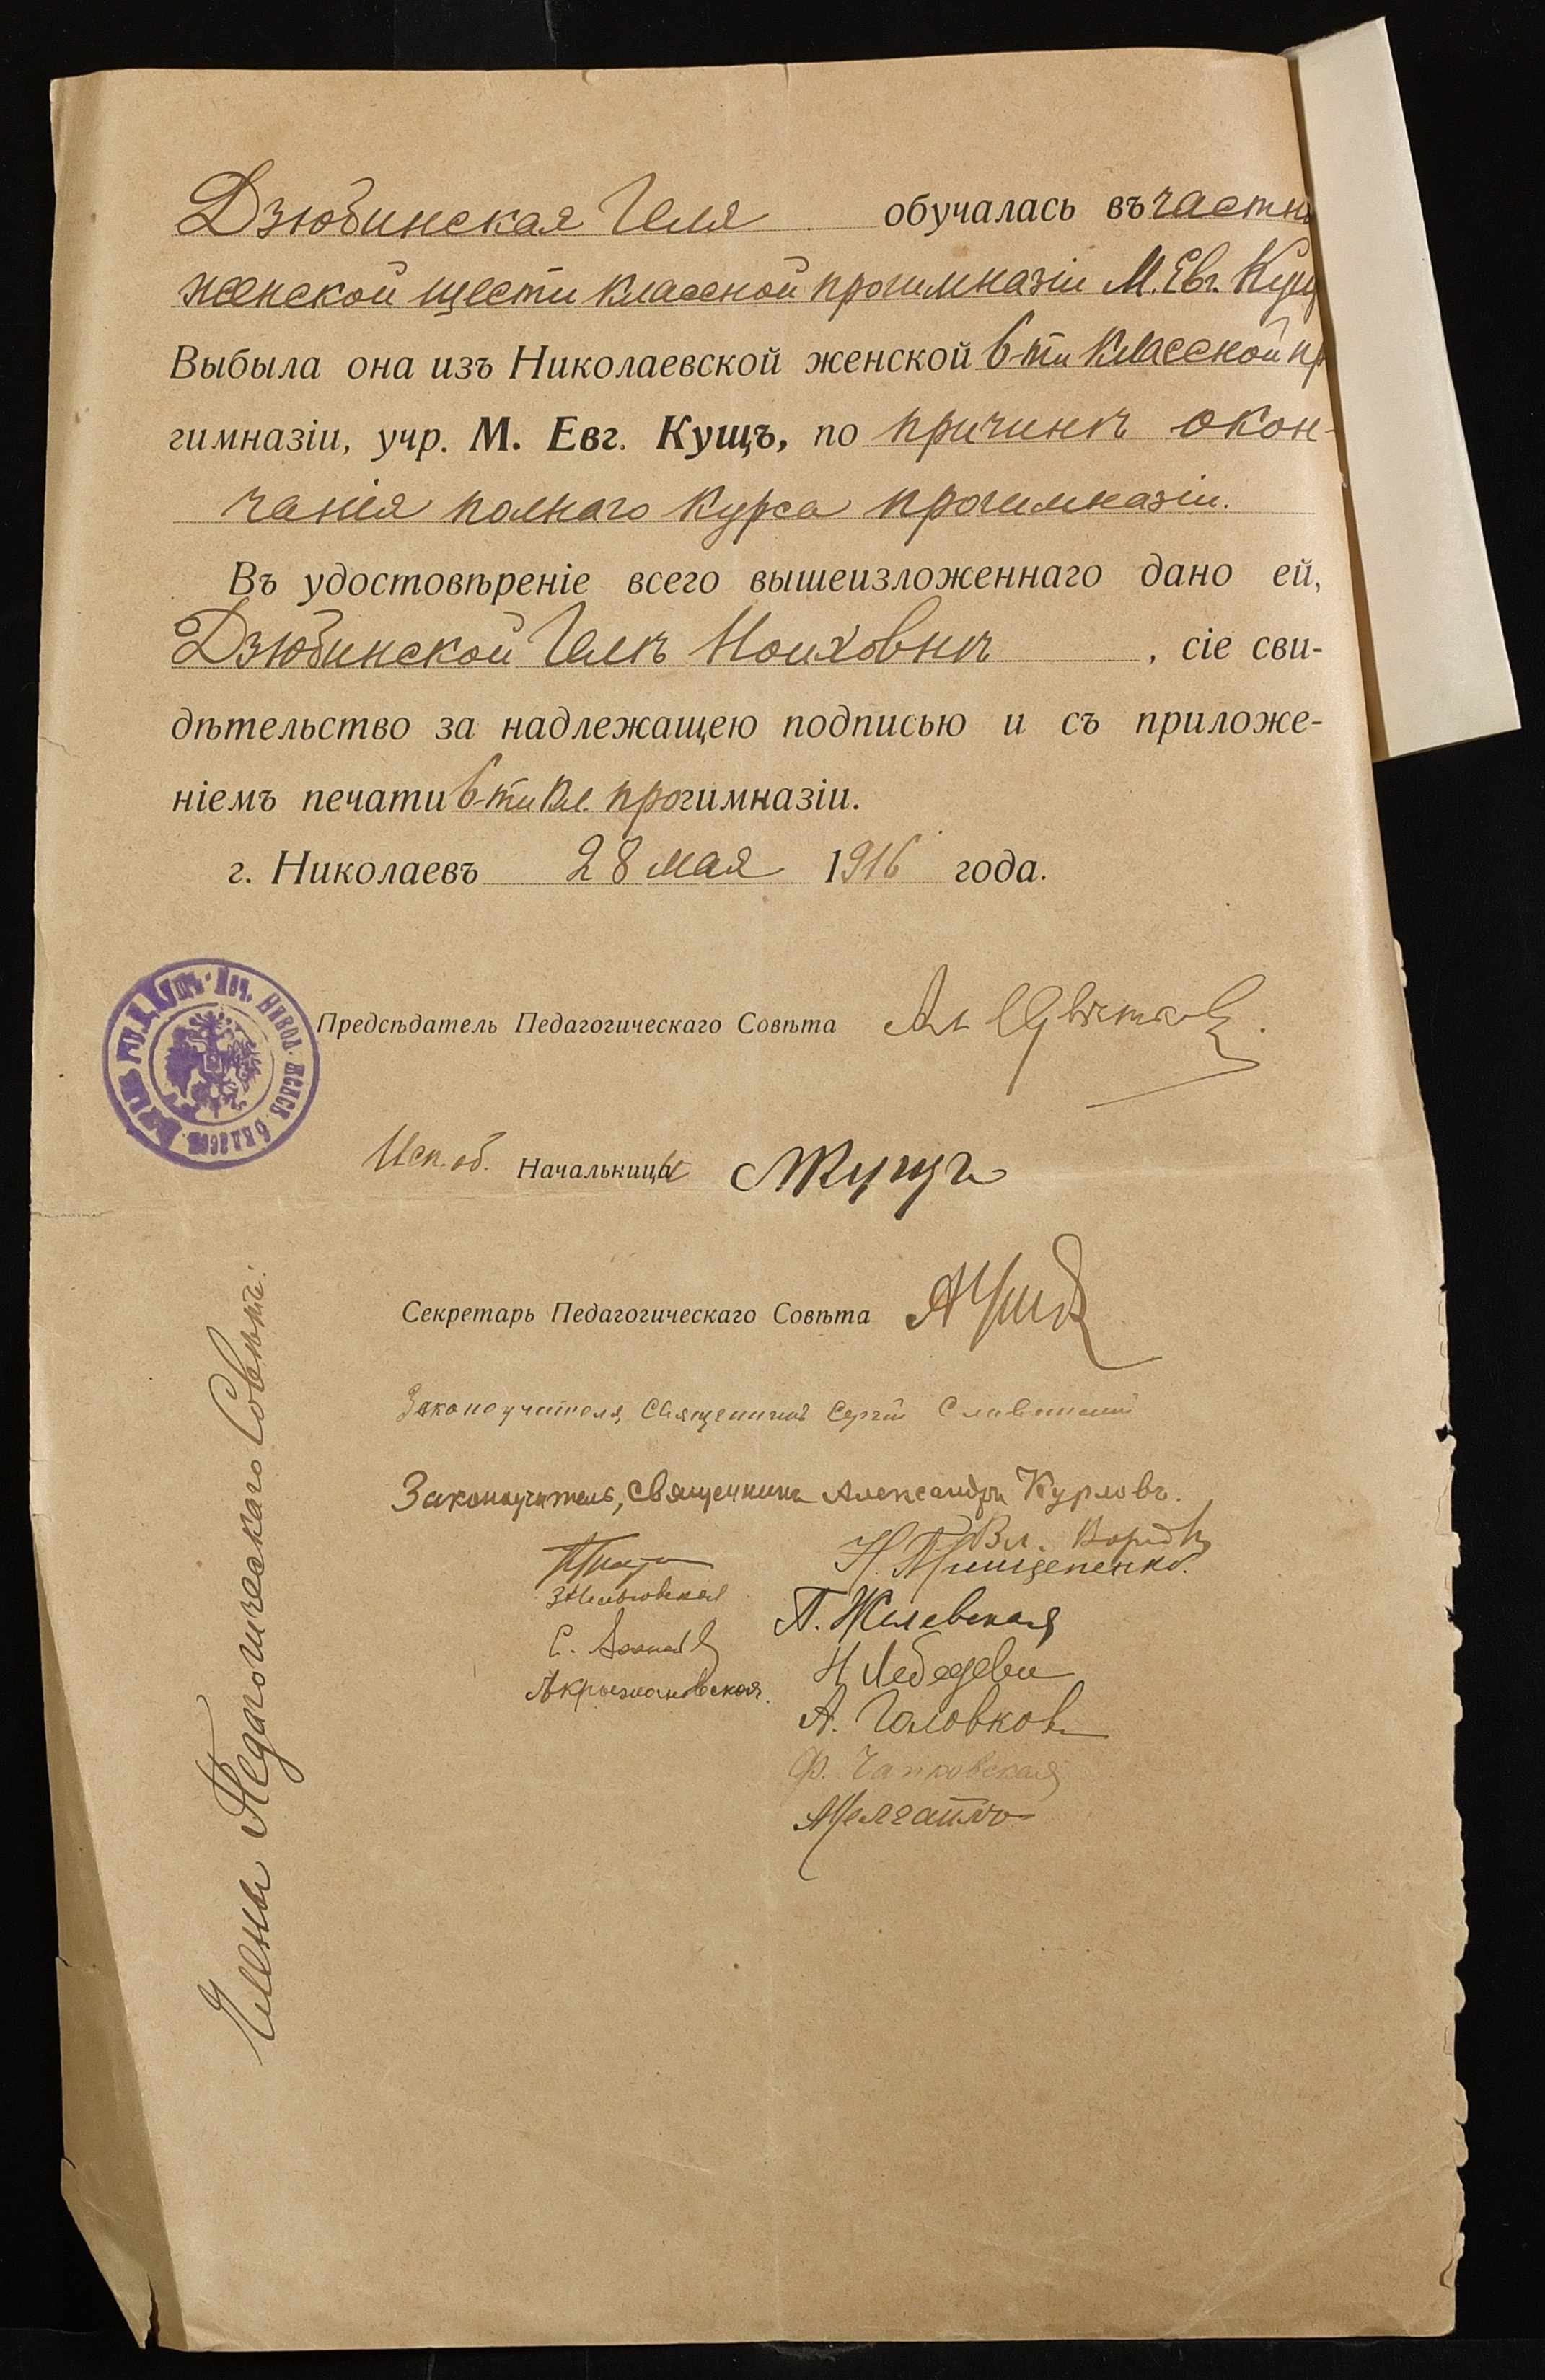 Дзюбинская Геля обучалась въ частн
женской шести классной прогимназіи М. Евг. Кущ
Выбыла она изъ Николаевской женской 6-ти классной пр
гимназіи, учр. М. Евг. Кущъ, по причинѣ окон-
чанія полнаго курса прогимназіи.
Въ удостовѣреніе всего вышеизложеннаго дано ей,
Дзюбинской Гелѣ Ноиховнѣ, сіе сви-
дѣтельство за надлежащею подписью и съ приложе-
ніемъ печати 6-ти кл. прогимназіи.
г. Николаевъ 28 мая 1916 года.
Предсѣдатель Педагогическаго Совѣта
Исп. об. Начальницы МКущъ
Секретарь Педагогическаго Совѣта
Законоучитель, Священникъ Сергій
Законоучитель, священникъ Александръ Курловъ.
Вл.
Н. Прищепенко.
П. Жилевская
Н Лебедева
А. Головков
А Крыжановская.
Ф. Чапковская
Члены Педагогическаго Совѣта: